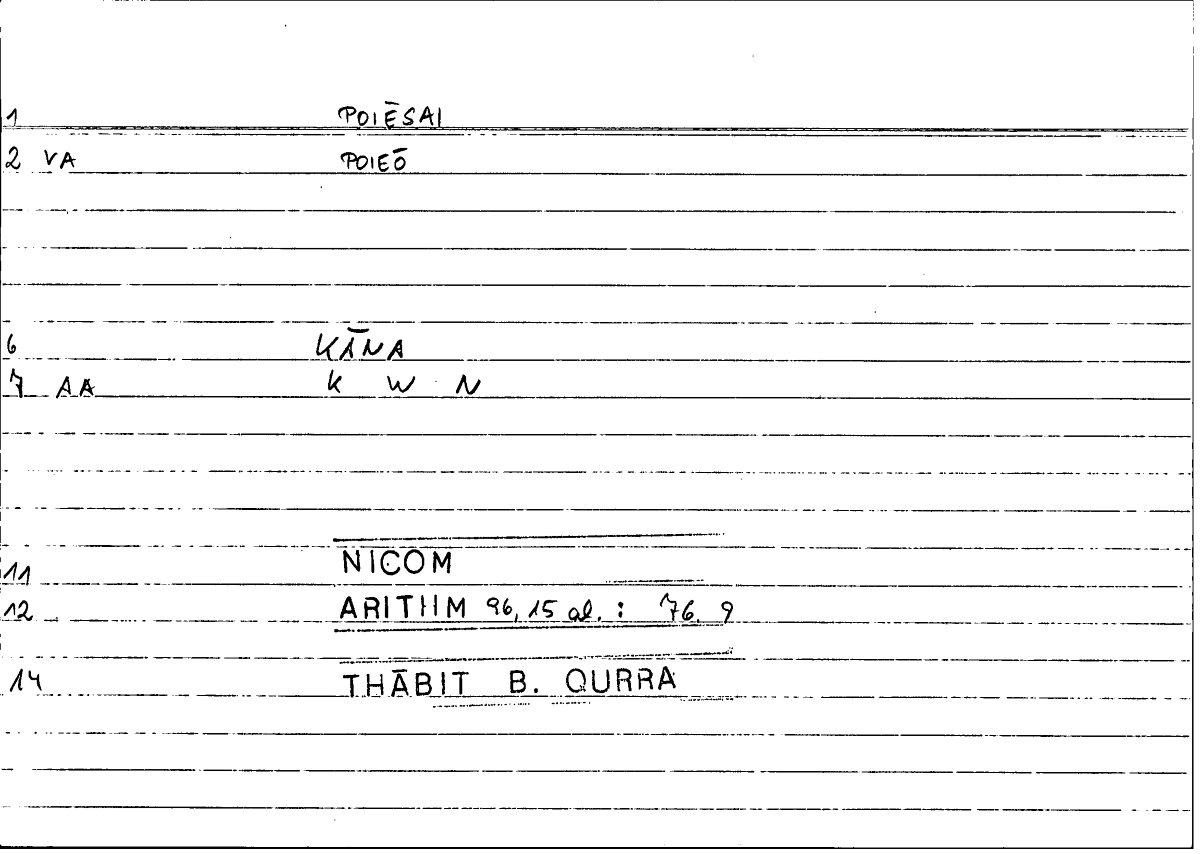 1 POIĒSAI
2 VA POIEŌ
6 KĀNA
7 AA K W N
11 NICOM
12 ARITHM 96, 15 al. : 76. 9
14 THĀBIT B. QURRA